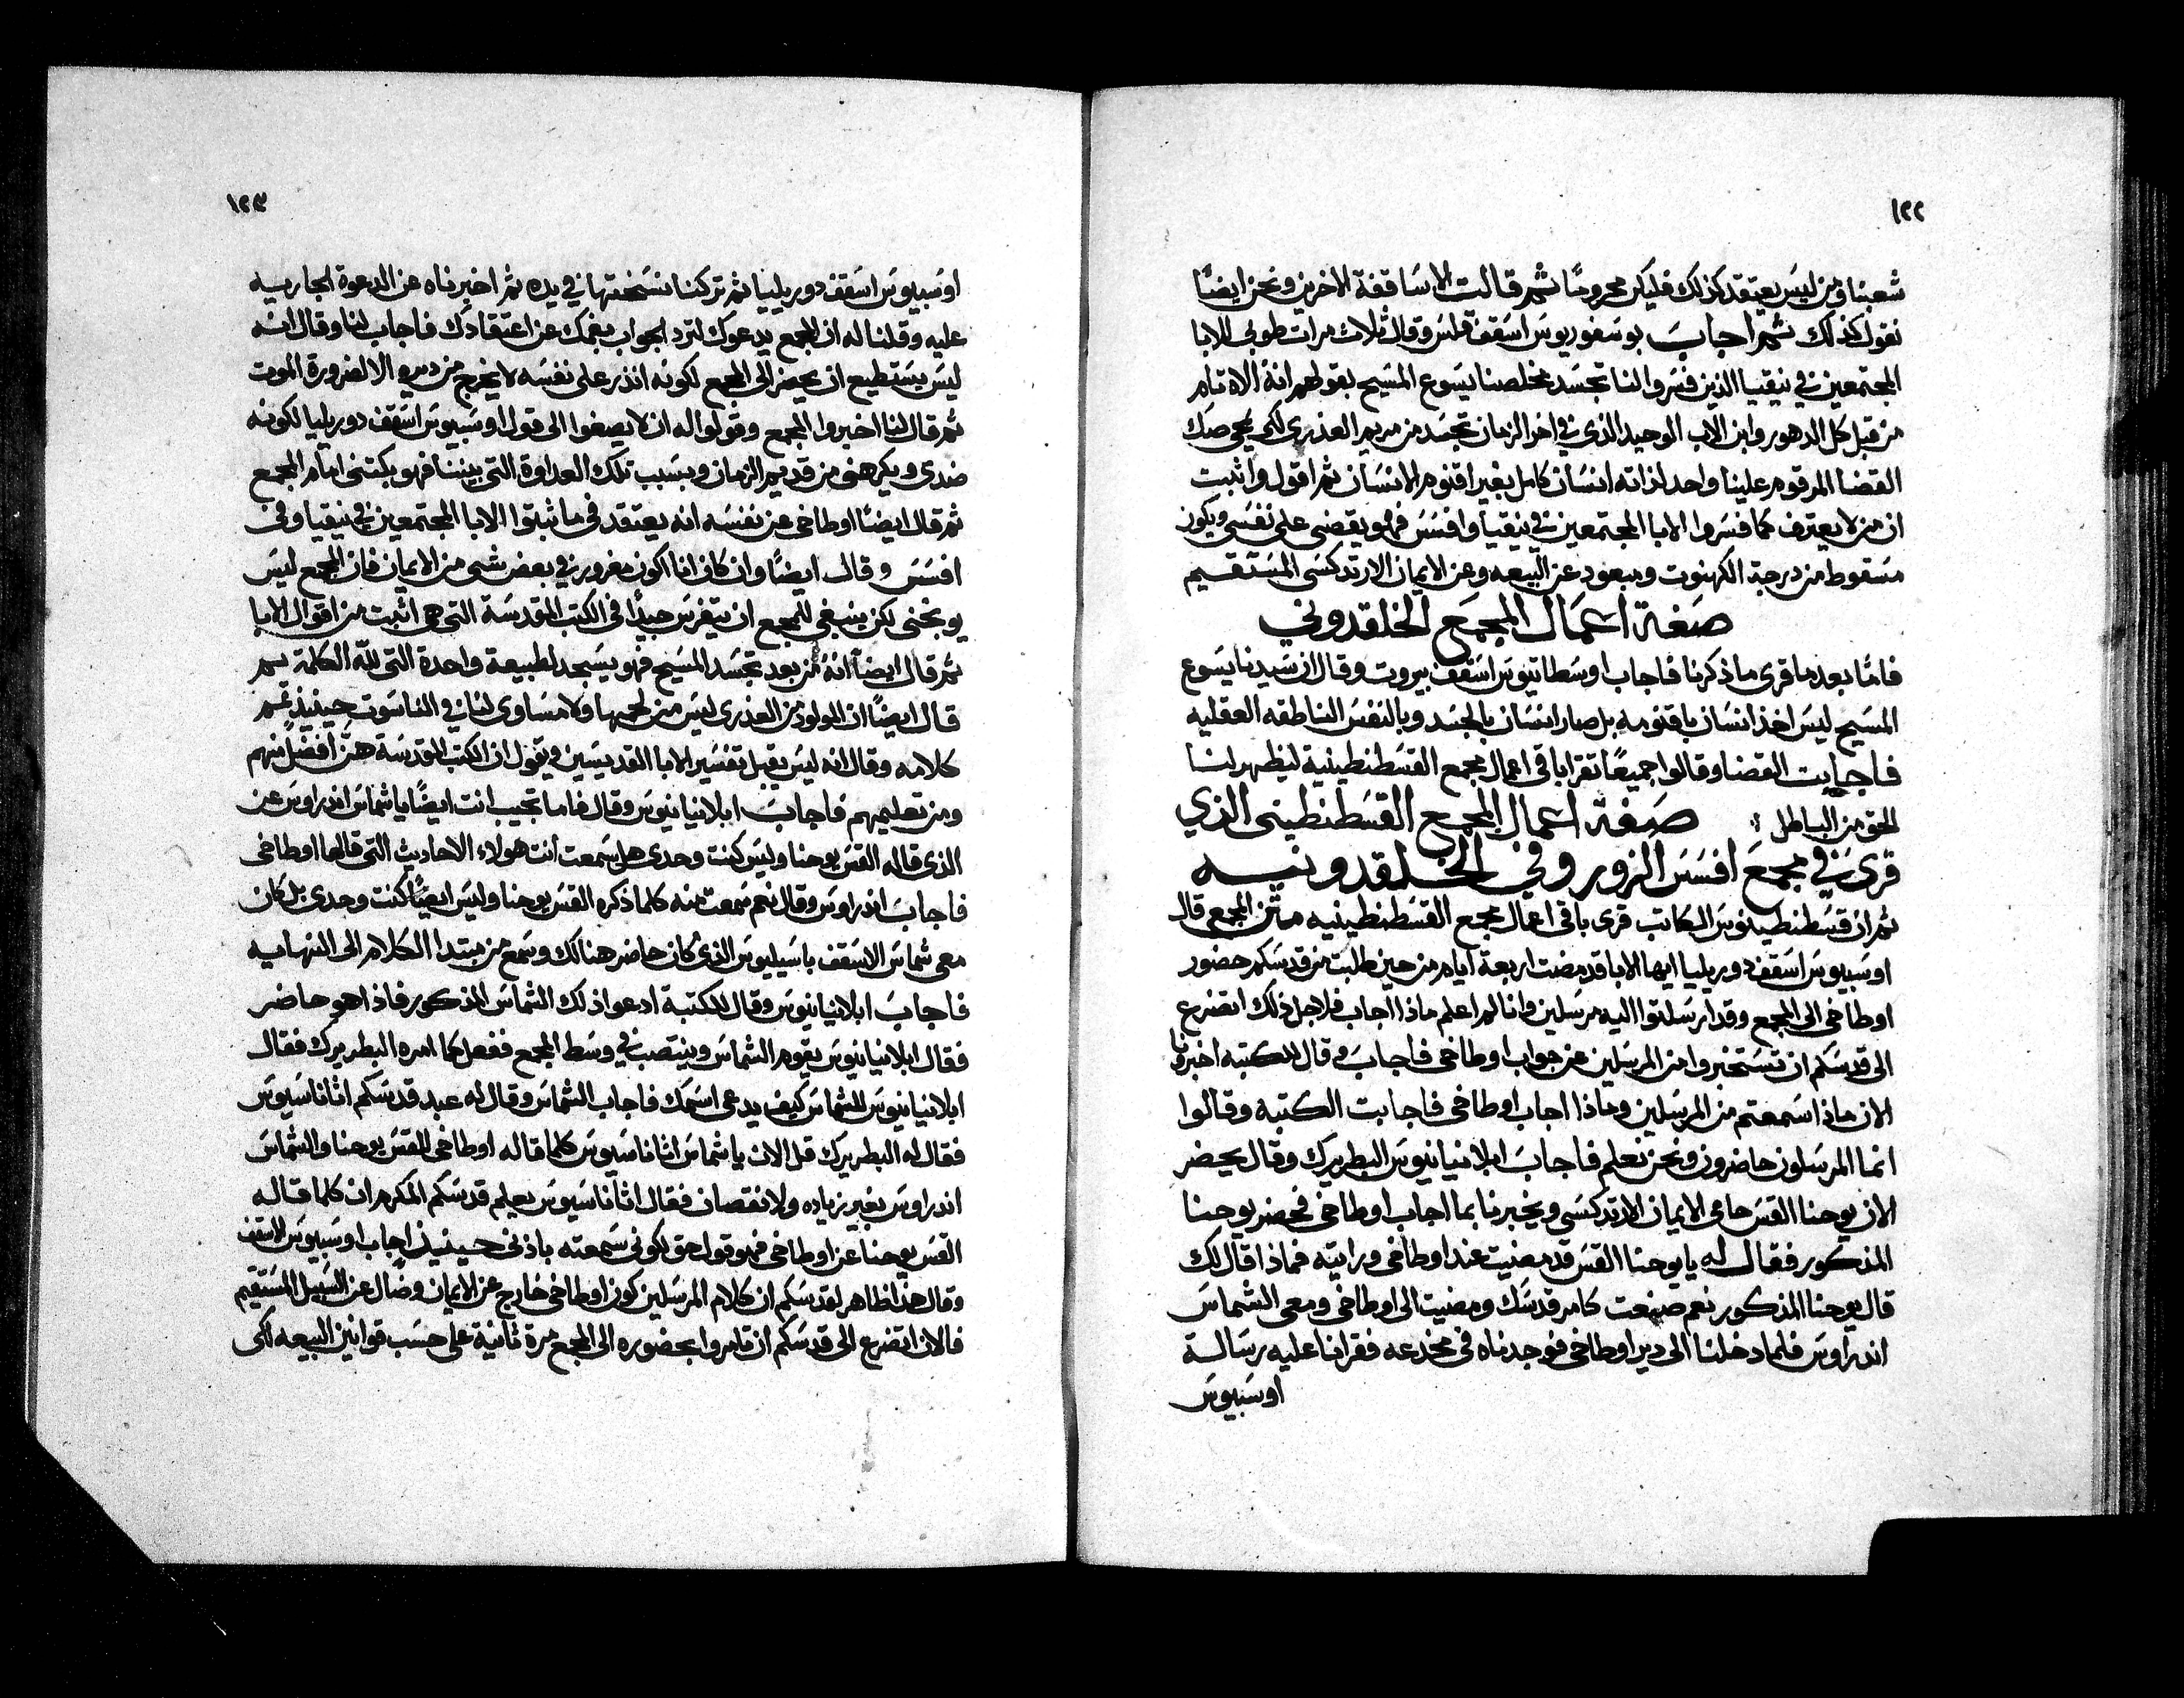 ١٢٢
شعبنا ومن ليس يعتقد كذلك فليكن محرومًا ثمر قالت الاساقفة الاخرين ونحن ايضًا
نقول كذلك ثمر اجاب بوسفوريوس اسقف وقال ثلاث مرات طوبى للابا
المجتمعين في نيقيا الذين فسروا لنا تجسد مخلصنا يسوع المسيح بقولهم انه الاه تام
من قبل كل الدهور وابن الاب الوحيد الذي في اخر الزمان تجسد من مريم العذرى لكي يمحي صك
القضا المرقوم علينا واحد لذاته انسان كامل بغير اقنوم الانسان ثم اقول واثبت
ان من لا يعترف كما فسروا الابا المجتمعين في نيقيا وافسس فهو يقضي على نفسي ويكون
مسقوط من درجة الكهنوت ومبعود عن البيعه وعن الايمان الارتدكسى المستقيم
صفة اعمال المجمع الخلقدوني
فامّا بعد ما قرى ما ذكرنا فاجاب اوسطاتيوس اسقف بيروت وقال ان سيدنا يسوع
المسيح ليس اخذ انسان باقنومه بل صار انسان بالجسد وبالنفس الناطقه العقليه
فاجابت القضا وقالوا جميعًا تقرا باقى اعمال مجمع القسطنطينية ليظهر لنا
الحق من الباطل صفة اعمال المجمع القسطنطينى الذي
قرى في مجمع افسس الزور وفي الخلقدونيه
ثمر ان قسطنطينوس الكاتب قرى باقى اعمال مجمع القسطنطينيه متن المجمع قال
اوسبيوس اسقف دوريليا ايها الابا قد مضت اربعة ايام من حين طلبت من قدسكم حضور
اوطاخى الى المجمع وقد ارسلتوا اليه مرسلين وانا لم اعلم ماذا اجاب فلاجل ذلك اتضرع
الى قدسكم ان تستخبروا من المرسلين عن جواب اوطاخى فاجاب وقال للكتبه اخبرونا
الان ماذا سمعتم من المرسلين وماذا اجاب اوطاخى فاجابت الكتبة وقالوا
انما المرسلون حاضرون ونحن نعلم فاجاب ابلانيانيوس البطريرك وقال يحضر
الان يوحنا القس حامى الايمان الارتدكسى ويخبرنا بما اجاب اوطاخى فحضر يوحنا
المذكور فقال له يا يوحنا القس قد مضيت عند اوطاخى ورايته فماذا قال لك
قال يوحنا المذكور نعم صنعت كامر قدسك ومضيت الى اوطاخى ومعى الشماس
اندراوس فلما دخلنا الى دير اوطاخى فوجدناه في مخدعه فقرانا عليه رسالة
اوسبيوس
١٢٣
اوسبيوس اسقف دوريليا ثمر تركنا نسختها في يده ثمر اخبرناه عن الدعوة الجاريه
عليه وقلنا له ان المجمع يدعوك لترد الجواب بفمك عن اعتقادك فاجاب لنا وقال انه
ليس يستطيع ان يحضر الى المجمع لكونه انذر على نفسه لا يخرج من ديره الا لضرورة الموت
ثمر قال لنا اخبروا المجمع وقولوا له ان لا يصغوا الى قول اوسبيوس اسقف دوريليا لكونه
ضدى ويكرهنى من قديم الزمان وبسبب تلك العداوة التى بيننا فهو بكتنى امام المجمع
ثمر قال ايضًا اوطاخى عن نفسه انه يعتقد في ما ثبتوا الابا المجتمعين في نيقيا وفى
افسس وقال ايضًا وان كان انا اكون مغرور في بعض شى من الايمان فان المجمع ليس
يوبخنى لكن ينبغى للمجمع ان يتفرس جيدًا في الكتب المقدسة التى هى اثبت من اقوال الابا
ثمر قال ايضًا انه من بعد تجسد المسيح فهو يسجد لطبيعة واحدة التى لله الكلمة ثمر
قال ايضًا ان المولود من العذرى ليس من لحمها ولا مساوى لنا في الناسوت حينيذ تمم
كلامه وقال انه ليس يقبل تفسير الابا القديسين ويقول ان الكتب المقدسة هنّ افضل منهم
ومن تعليمهم فاجاب ابلانيانيوس وقال فاما تجيب انت ايضًا يا شماس اندراوس عن
الذى قاله القس يوحنا وليس كنت وحدى هل سمعت انت هولاء الاحاديث التى قالها اوطاخى
فاجاب اندراوس وقال نعم سمعت منه كلما ذكره القس يوحنا وليس ايضًا كنت وحدى بل كان
معى شماس الاسقف باسيليوس الذى كان حاضر هنالك وسمع من مبتدا الكلام الى النهايه
فاجاب ابلانيانيوس وقال للكتبة ادعوا ذلك الشماس المذكور فاذا هو حاضر
فقال ابلانيانيوس يقوم الشماس وينتصب في وسط المجمع ففعل كما امره البطريرك فقال
ابلانيانيوس للشماس كيف يدعى اسمك فاجاب الشماس وقال له عبد قدسكم اثاناسيوس
فقال له البطريرك قل الان يا شماس اثاناسيوس كلما قاله اوطاخى للقس يوحنا والشماس
اندراوس بغير زياده ولا نقصان فقال اثاناسيوس يعلم قدسكم المكرم ان كلما قاله
القس يوحنا عن اوطاخى فهو قول حق لكونى سمعته باذنى حينيذ اجاب اوسبيوس الاسقف
وقال هذا ظاهر لقدسكم ان كلام المرسلين كون اوطاخى خارج عن الايمان وضال عن السبيل المستقيم
فالان اتضرع الى قدسكم ان تامروا بحضوره الى المجمع مرة ثانية على حسب قوانين البيعه لكى